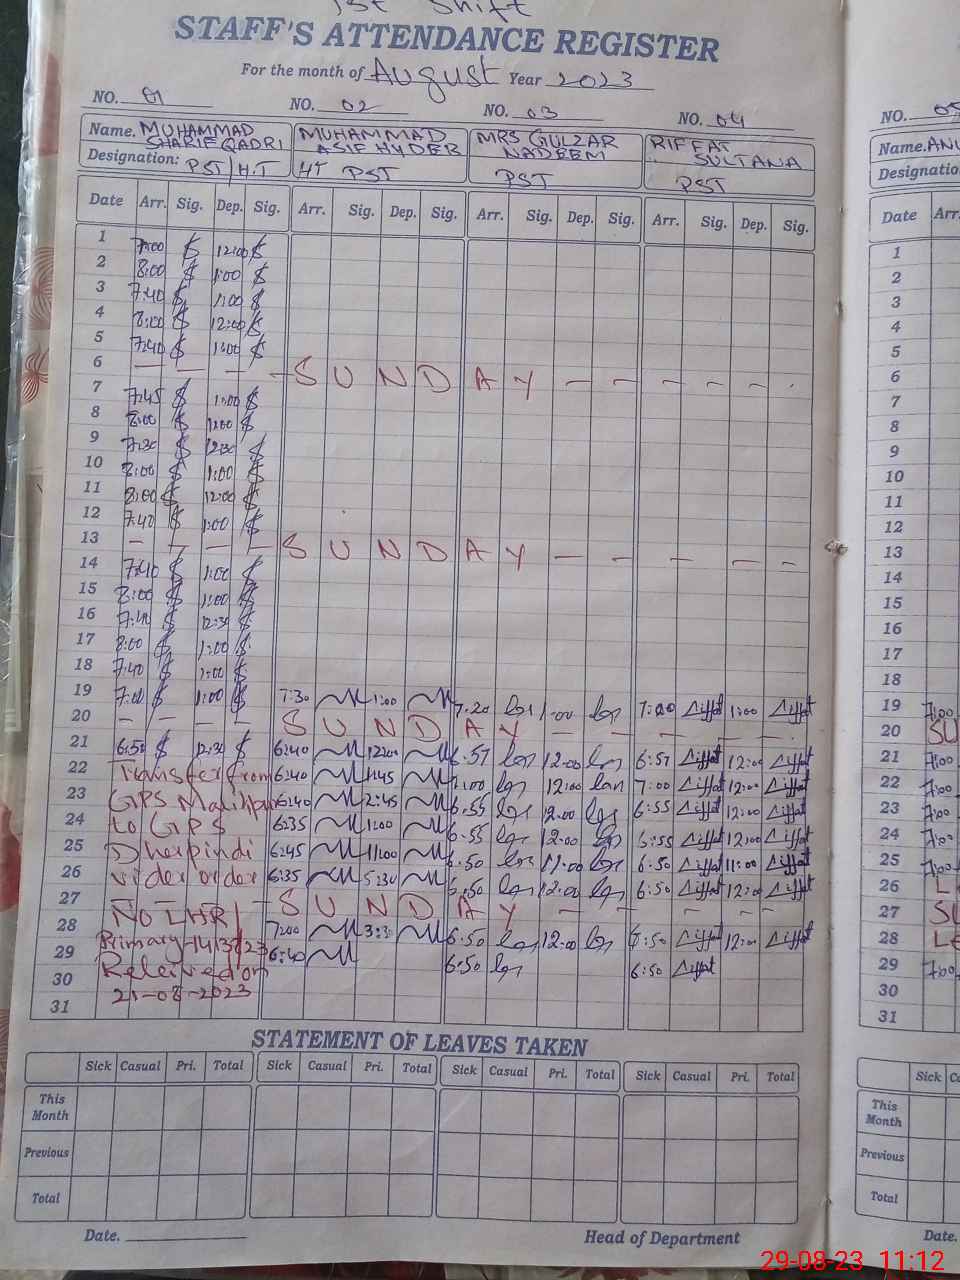 1st Shift
STAFF'S ATTENDANCE REGISTER
For the month of August Year 2023
NO. 01 NO. 02 NO. 03 NO. 04 NO. 05
Name. MUHAMMAD SHARIF QADRI MUHAMMAD ASIF HYDER MRS GULZAR NADEEM RIFFAT SULTANA Name.
Designation: PST/H.T HT PST PST PST
Date Arr. Sig. Dep. Sig. Arr. Sig. Dep. Sig. Arr. Sig. Dep. Sig. Arr. Sig. Dep. Sig. Date Arr.
1 7:00 12:00 1
2 8:00 1:00 2
3 7:40 1:00 3
4 8:00 12:00 4
5 7:40 1:00 5
6 — — — — SUNDAY — — — — — — 6
7 7:45 1:00 7
8 8:00 1:00 8
9 7:30 12:30 9
10 8:00 1:00 10
11 8:00 12:00 11
12 7:40 1:00 12
13 — — — — SUNDAY — — — — — 13
14 7:40 1:00 14
15 8:00 1:00 15
16 7:40 12:30 16
17 8:00 1:00 17
18 7:40 1:00 18
19 7:00 1:00 7:30 1:00 7.20 1:00 7:00 1:00 19 7:00
20 — — — — SUNDAY — — — — — — 20 SU
21 6:50 12:30 6:40 12:00 6.57 12:00 6:57 12:00 21 7:00
22 Transfer from 6:40 1:45 7:00 12:00 7:00 12:00 22 7:00
23 GPS 6:40 2:45 6:55 12:00 6:55 12:00 23 7:00
24 to GPS 6:35 1:00 6:55 12:00 6:55 12:00 24 7:00
25 Dherpindi 6:45 11:00 6:50 11:00 6:50 11:00 25 7:00
26 vider order 6:35 5:30 6:50 12:00 6:50 12:00 26
27 SUNDAY — — — — 27 SU
28 No LHR/ 7:00 3:30 6:50 12:00 6:50 12:00 28
29 Primary 6:40 6:50 6:50 29 7:00
30 Releived on 30
31 21-08-2023 31
STATEMENT OF LEAVES TAKEN
Sick Casual Pri. Total Sick Casual Pri. Total Sick Casual Pri. Total Sick Casual Pri. Total Sick
This Month This Month
Previous Previous
Total Total
Date. Head of Department Date.
29-08-23 11:12